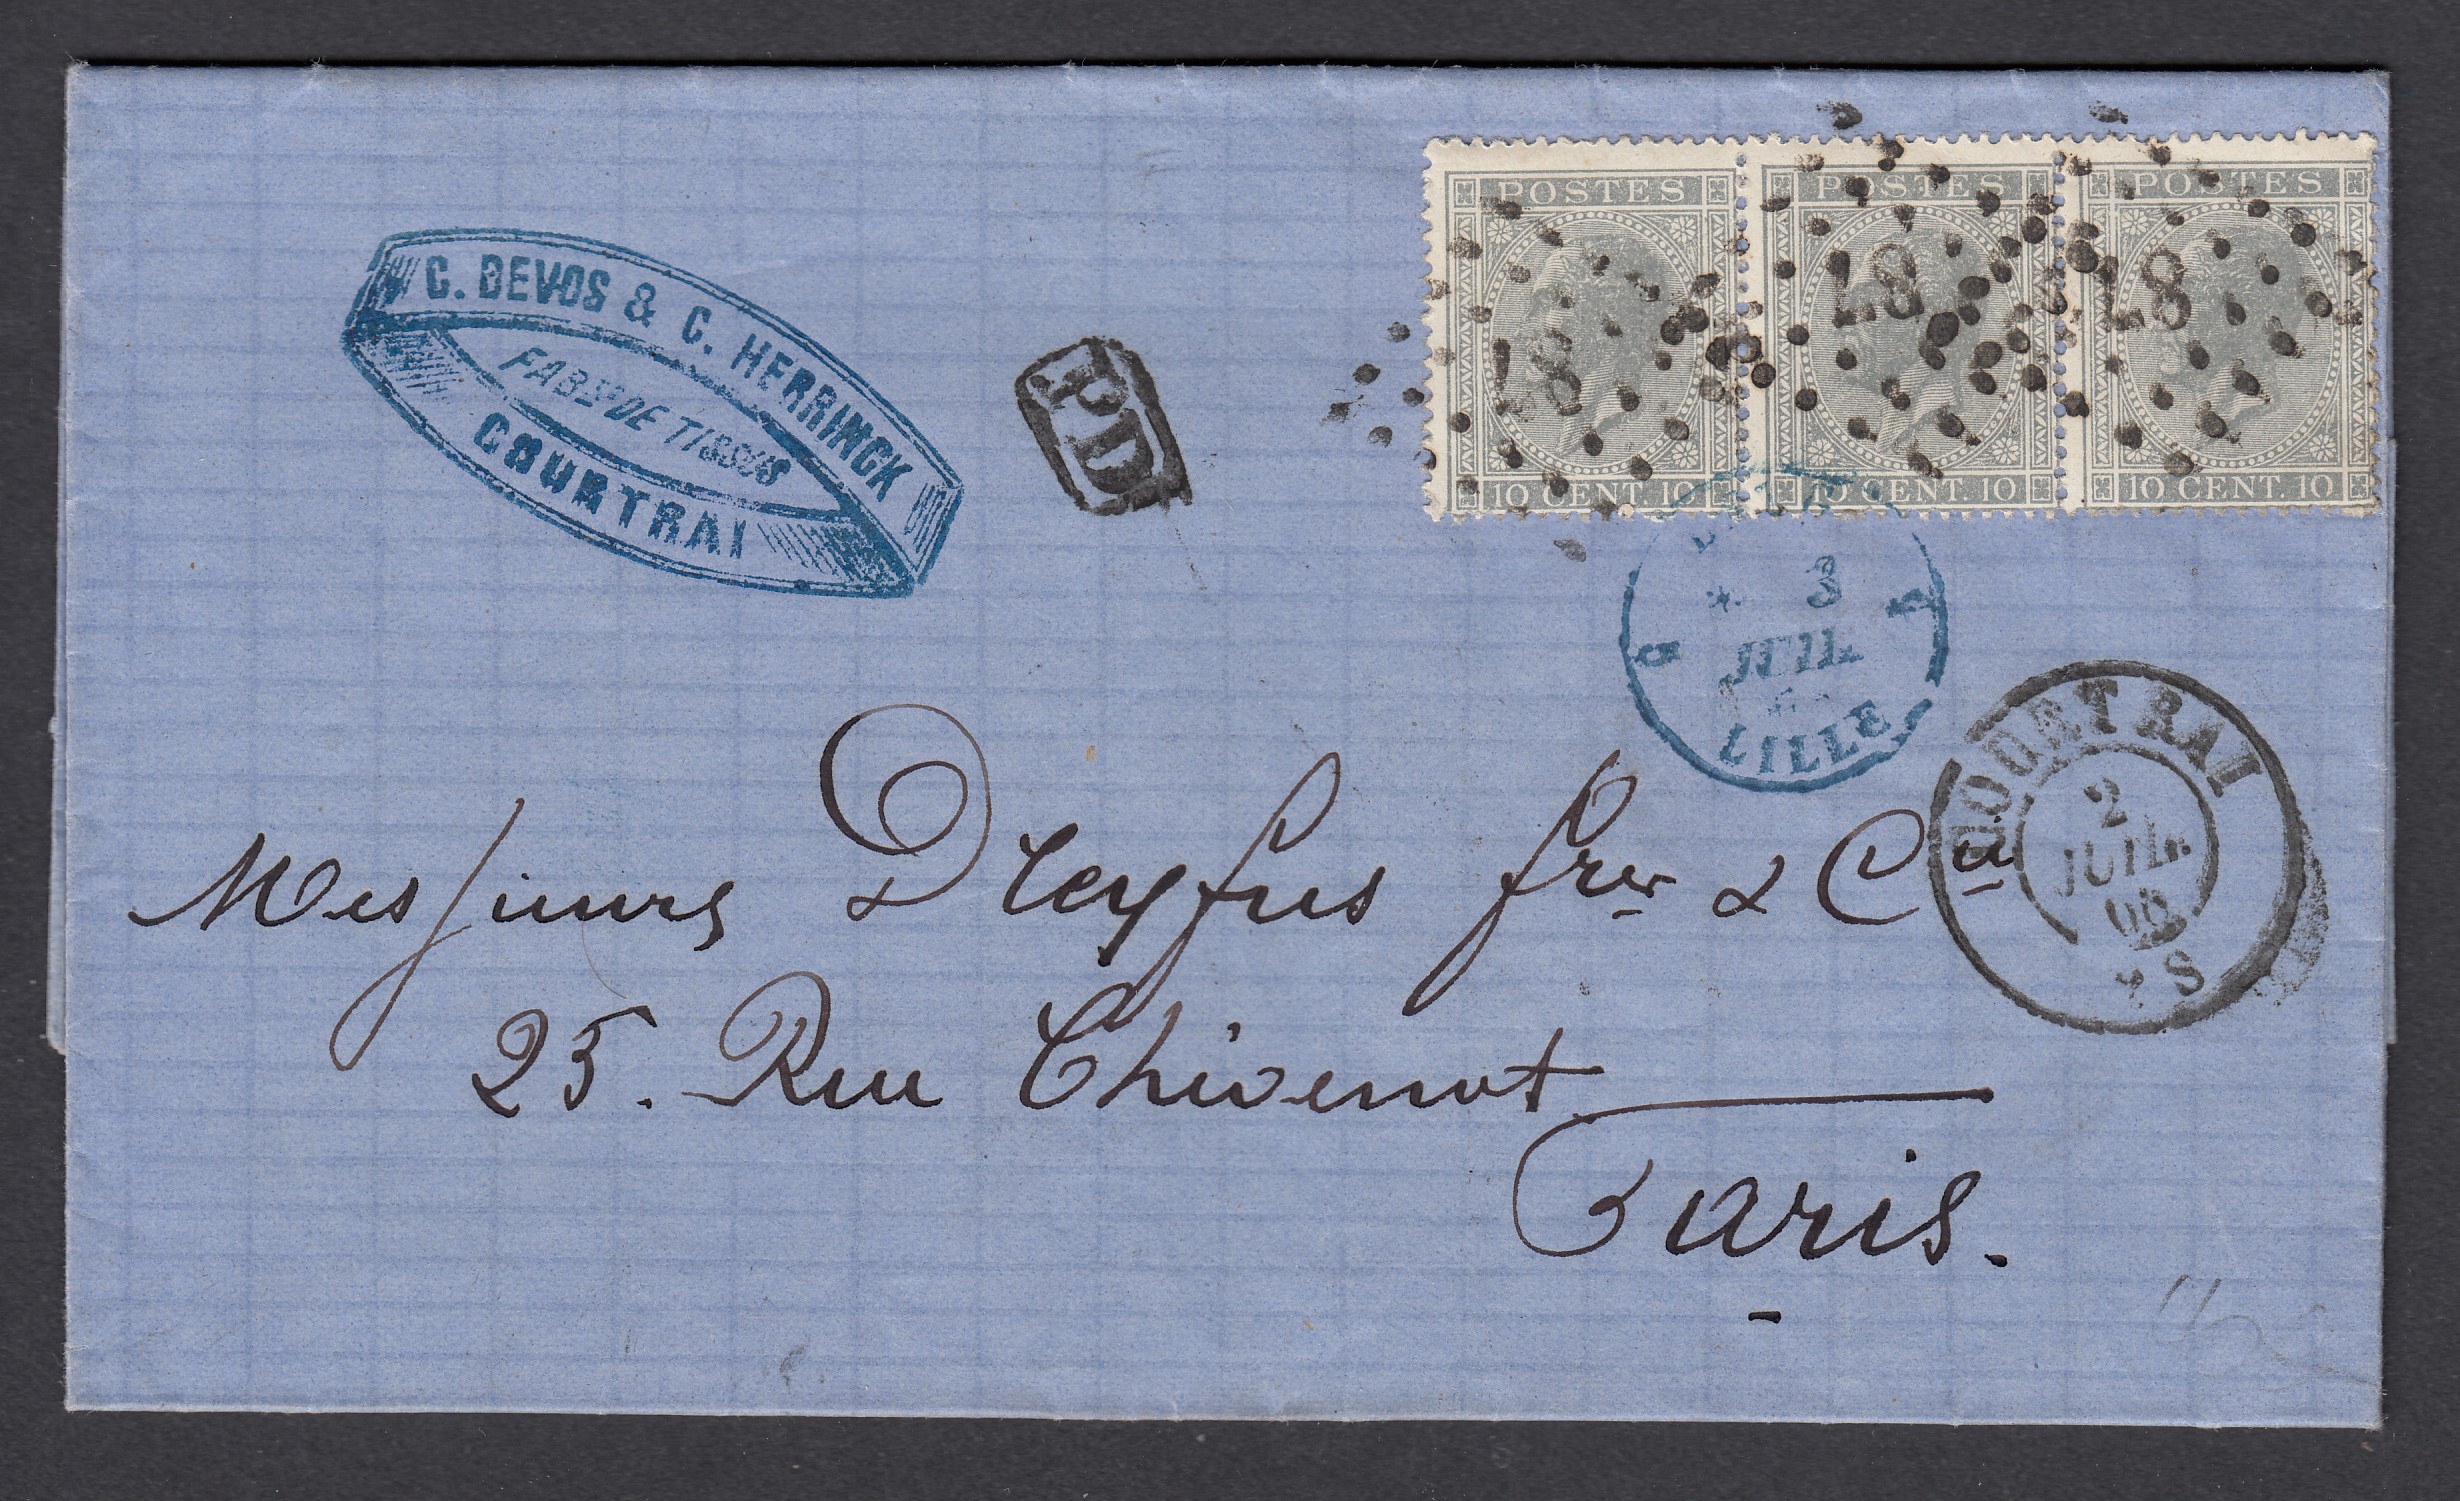 C. DEVOS & C. HERRINCK
FABTS DE TISSUS
COURTRAI
PD
POSTES POSTES POSTES
87 87 87
10 CENT. 10 10 CENT. 10 10 CENT. 10
3
JUIL.
LILLE
COURTRAI
2
JUIL.
8 S
Messieurs Dreyfus frer & Cie
25. Rue Thévenot
Paris.